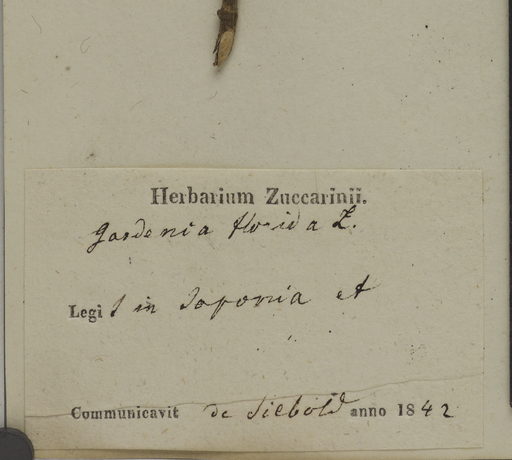 Herbarium Zuccarinii.
Gardenia florida L.
Legit in Japonia et
Communicavit de Siebold anno 1842